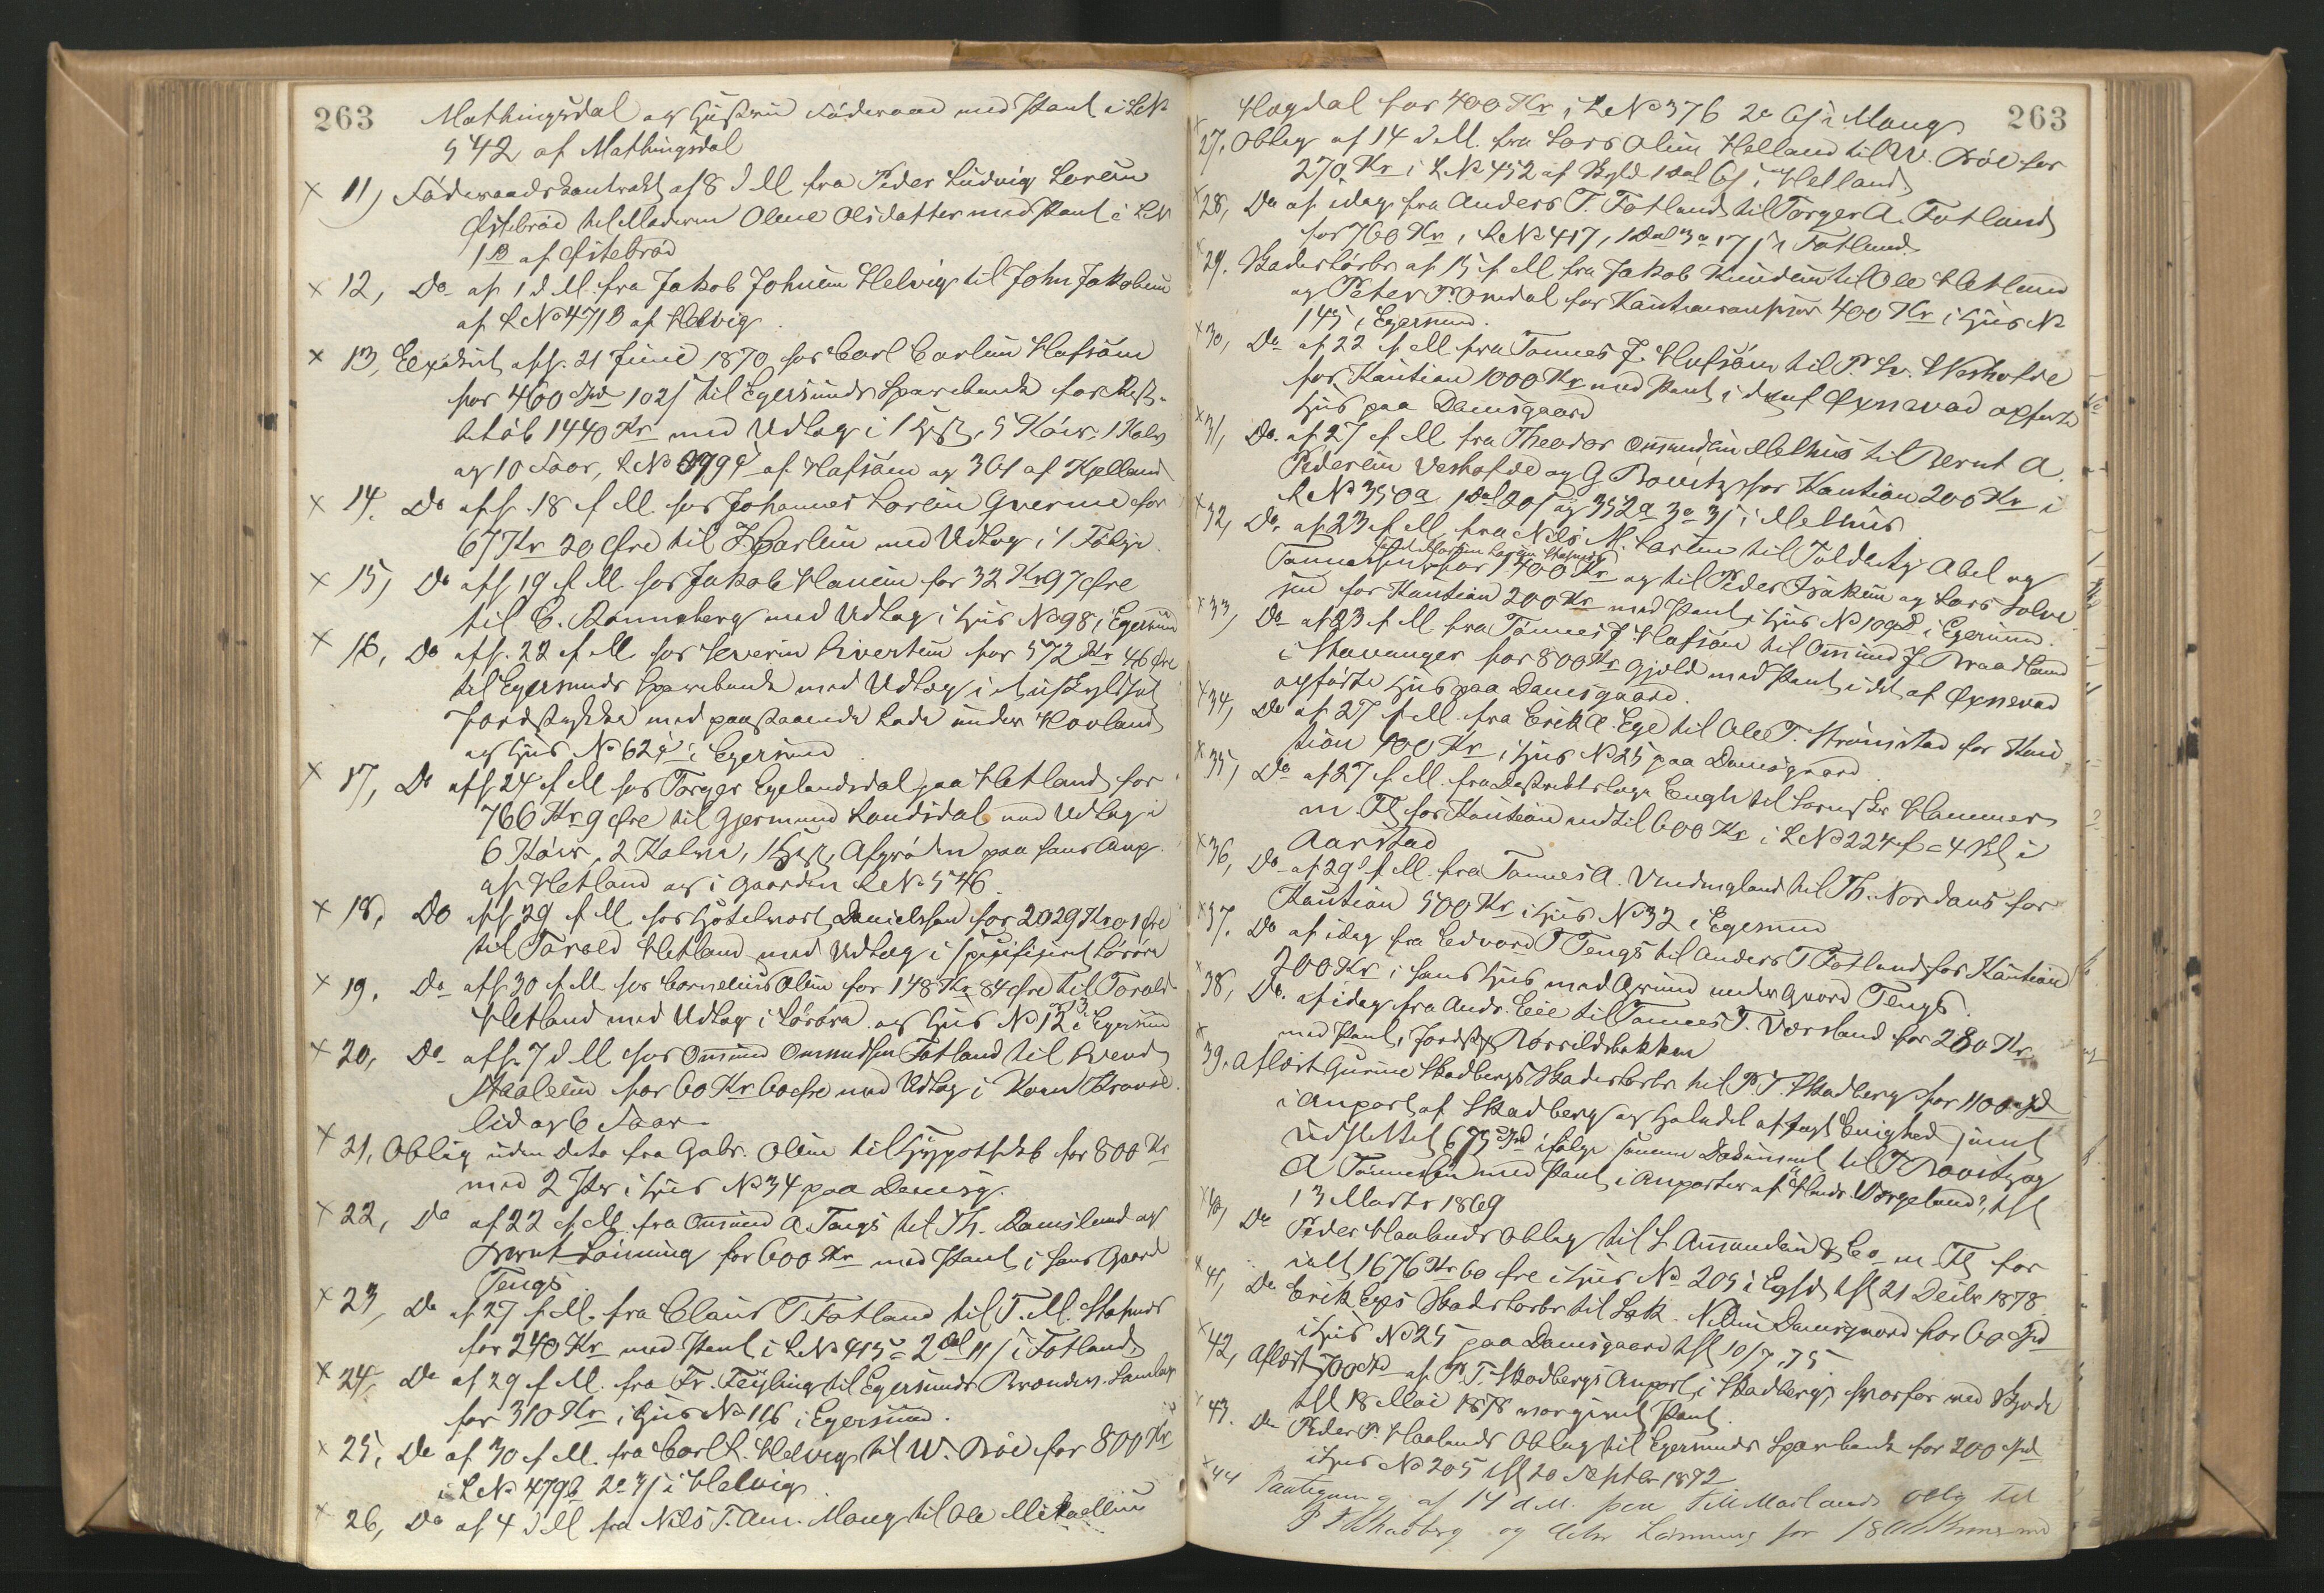 263
Mathingsdal og Hustru Föderaad med Pant i LN
542 af Mathingsdal
× 11, Föderaadskontrakt af 8 d M fra Peder Ludvig Larsen
Østebröd til Moderen Olene Olsdatter med Pant i LN
1 B af Østebröd
× 12, Do af 1 d M. fra Jakob Johnsen Helvig til John Jakobsen
af L No 471 B af Helvig
× 13, Exekut. afh. 21 Juni 1870 hos Carl Carlsen Hafsöen
for 460 Spd 102 s til Egersunds Sparebank for Rest-
beløb 1440 Kr med Udlæg i 1 Hest, 5 Köer, 1 Kalv
og 10 Faar, L No 399 af Hafsöen og 3 af Kjelland
× 14. Do afh. 18 f M. hos Johannes Larsen Qverme for
67 Kr 20 Øre til J. Carlsen med Udlæg i 1 Følge
× 15, Do afh 19 f M. hos Jakob Hansen for 32 Kr 97 Øre
til C. Rønneberg med Udlæg i Hus No 98 i Egersund
× 16, Do afh. 22 f M hos Severin Sivertsen for 572 Kr 46 Øre
til Egersunds Sparebank med Udlæg i et uskyldsat
Jordstykke med paastaaende Lade under Hovland
og Hus No 62 i Egersund
× 17, Do afh 24 f M hos Torger Egelandsdal paa Hetland for
766 Kr 9 Øre til Gjermund Landsdal med Udlæg i
6 Köer, 2 Kalve, 1 Hest, Afgröden paa hans Anp.
af Hetland og i Gaarden L No 546.
× 18, Do afh 29 f M hos Hotelvært Danielsen for 2029 Kr 01 Øre
til Torald Hetland med Udlæg i specificeret Lösöre
× 19, Do afh 30 f M. hos Cornelius Olsen for 148 Kr 84 Øre til Torald
Hetland med Udlæg i Lösöre og Hus No 12 og 13 i Egersund
× 20, Do afh. 7 d M hos Omund Omundsen Fotland til Svend
Staalesen for 60 Kr 60 Øre med Udlæg i
og 6 Faar
× 21, Oblig uden Dato fra Gabr. Olsen til Hypothekb for 800 Kr
med 2 Pr i Hus No 34 paa Damsg.
× 22, Do af 22 f M. fra Omund A Tengs til Th. Ramsland og
Bernt Lönning for 600 Kr med Pant i hans Gaard
Tengs
× 23, Do af 27 f M. fra Claus T. Fotland til T. M. Stapnes
for 240 Kr med Pant i L No 415 2 Dal 11 s i Fotland
× 24, Do af 29 f M. fra Fr. Feyling til Egersunds Brænder. Samlag
for 310 Kr i Hus No 116 i Egersund.
× 25, Do af 30 f M. fra Carl L. Helvig til W. Böe for 800 Kr
i L No 479 b i Helvig
× 26, Do af 4 d M fra Nils T. Mong til Ole Mikaelsen
263
Hogdal for 400 Kr i L No 376 i Mong
× 27, Oblig af 14 d M. fra Lars Olsen Helland til W. Böe for
270 Kr i L No 452 af Skyld 1 Dal 6 s i Helland
× 28, Do af idag fra Anders T. Fotland til Torger A. Fotland
for 760 Kr i L No 417, 1 Dal 3 17 s i Fotland
× 29. Skadeslösbr af 15 f M fra Jakob Knudsen til Ole Hetland
og Peter P. Omdal for Kautionsansvar 400 Kr i Hus No
145 i Egersund.
× 30, Do af 22 f M fra Tønnes J. Hafsöen til P. Sv. Veshovde
for Kaution 1000 Kr med Pant i det af Øxnevad opførte
Hus paa Damsgaard
× 31, Do. af 27 f M fra Theodor Omundsen Melhus til Bernt A.
Pedersen Veshovde og G Bowitz for Kaution 200 Kr i
L No 350 a 1 Dal 20 s og 352 a 3 s i Melhus
× 32, Do. af 23 f M. fra Nils M. Larsen til Toldbetj. Abel og
Tønnessen for 1400 Kr og til Peder Isaksen og Lars Salve
sen for Kaution 200 Kr med Pant i Hus No 109 i Egersund.
× 33, Do af 23 f M fra Tønnes J Hafsöen til Omund J. Braadland
i Stavanger for 800 Kr Gjeld med Pant i det af Øxnevad
opførte Hus paa Damsgaard.
× 34, Do af 27 f M. fra Erik A. Ege til Ole T. Strömstad for Kau-
tion 400 Kr i Hus No 25 paa Damsgaard
× 35, Do af 27 f M. fra Distriktslæge Engh til Hammer
m. Fl for Kaution indtil 600 Kr i L No 224 i
Aarstad
× 36, Do af 29 f M. fra Tønnes A. til Th. Nordaas for
Kaution 500 Kr i Hus No 32 i Egersund
× 37. Do af idag fra Edvard T Tengs til Anders T Fotland for Kaution
200 Kr i hans Hus med Grund under Gaard Tengs.
× 38, Do. af idag fra Andr. Eeie til Tønnes T. Værsland for 280 Kr
med Pant i Jordst.
× 39. Aflæst Gurine Skadbergs Skadeslösbr. til P. T. Skadberg for 1100 Spd
i Anpart af Skadberg og Halvdel af Enighed samt
udslettet 675 Spd ifølge samme Dokument til J Bowitz og
A Tønnesen med Pant i Anparter af Vorgeland, tl
13 Marts 1869
× 40, Do Peder Haalands Oblig til L Amundsen & Co m. Fl for
ialt 1676 Kr 60 Øre i Hus No 205 i Egsd, tl 21 Decbr 1878
× 41, Do Erik Eges Skadeslösbr til Nilsen Damsgaard for 60 Spd
i Hus No 25 paa Damsgaard tl 10/7, 75
× 42, Aflæst 700 Spd af P. T. Skadbergs Anpart i Skadberg, hvorfor ved Skjøde
tl 18 Mai 1878 Pant.
× 43. Do Peder P. Haalands Oblig til Egersunds Sparebank for 200 Spd
i Hus No 205 tl 20 Septbr 1872
× 44 af 14 d M. paa oblig til
P T Skadberg og Lönning for